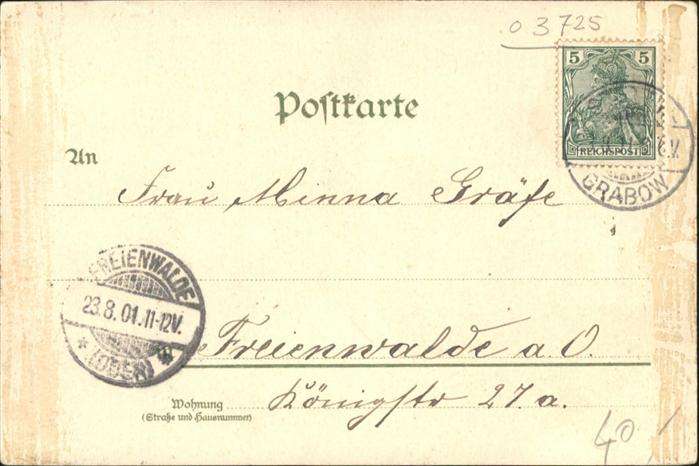 0 3725
5 5
REICHSPOST
GRABOW
Postkarte
An
Frau Minna Gräfe
FREIENWALDE
23.8.01.11-12V.
* (ODER) *
Freienwalde a. O.
Wohnung
(Straße und Hausnummer)
Königstr 27. a.
40